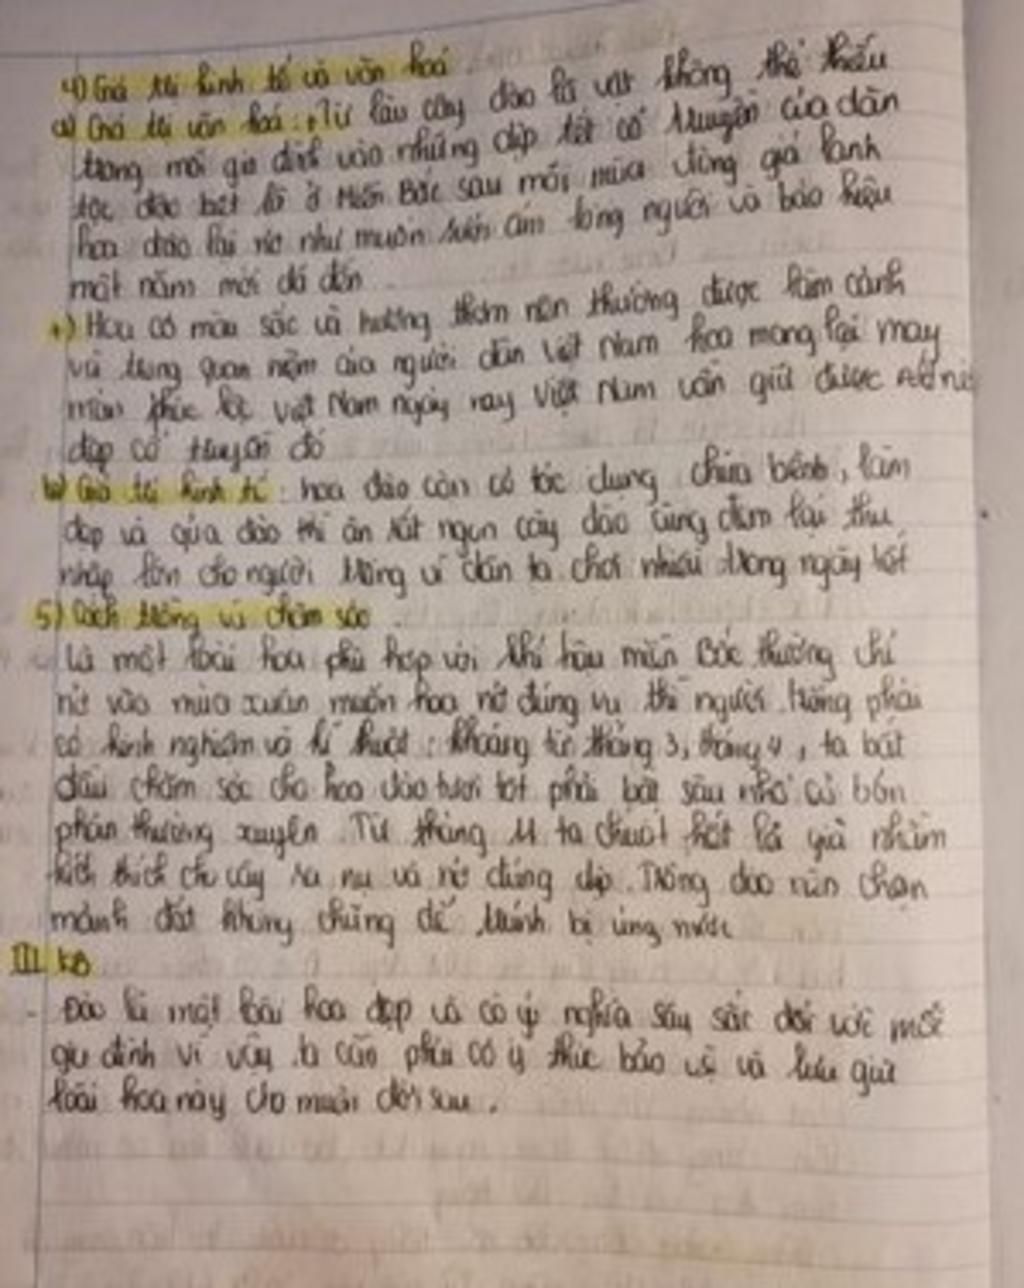 4) Giá trị kinh tế và văn hoá
a) Giá trị văn hoá: + Từ lâu cây đào là vật không thể thiếu
trong mỗi gia đình vào những dịp tết cổ truyền của dân
tộc đặc biệt là ở Miền Bắc sau mỗi mùa đông giá lạnh
hoa đào lại nở như muốn sưởi ấm lòng người và báo hiệu
một năm mới đã đến
+) Hoa có màu sắc và hương thơm nên thường được làm cảnh
và trong quan niệm của người dân Việt Nam hoa mang lại may
mắn phúc lộc Việt Nam ngày nay Việt Nam vẫn giữ được nét
đẹp cổ truyền đó
b) Giá trị kinh tế: hoa đào còn có tác dụng chữa bệnh, làm
đẹp và qủa đào thì ăn rất ngon cây đào cũng đem lại thu
nhập lớn cho người trồng vì dân ta chơi nhiều trong ngày tết
5) Cách trồng và chăm sóc
Là một loài hoa phù hợp với khí hậu miền Bắc thường chỉ
nở vào mùa xuân muốn hoa nở đúng vụ thì người trồng phải
có kinh nghiệm và kĩ thuật: khoảng từ tháng 3, tháng 4, ta bắt
đầu chăm sóc cho hoa đào tươi tốt phải bắt sâu nhổ cỏ bón
phân thường xuyên. Từ tháng 11 ta tuốt hết lá già nhằm
kích thích cho cây ra nụ và nở đúng dịp. Trồng đào nên chọn
mảnh đất không trũng để tránh bị úng nước
III KB
- Đào là một loài hoa đẹp và có ý nghĩa sâu sắc đối với mỗi
gia đình vì vậy ta cần phải có ý thức bảo vệ và lưu giữ
loài hoa này cho muôn đời sau.